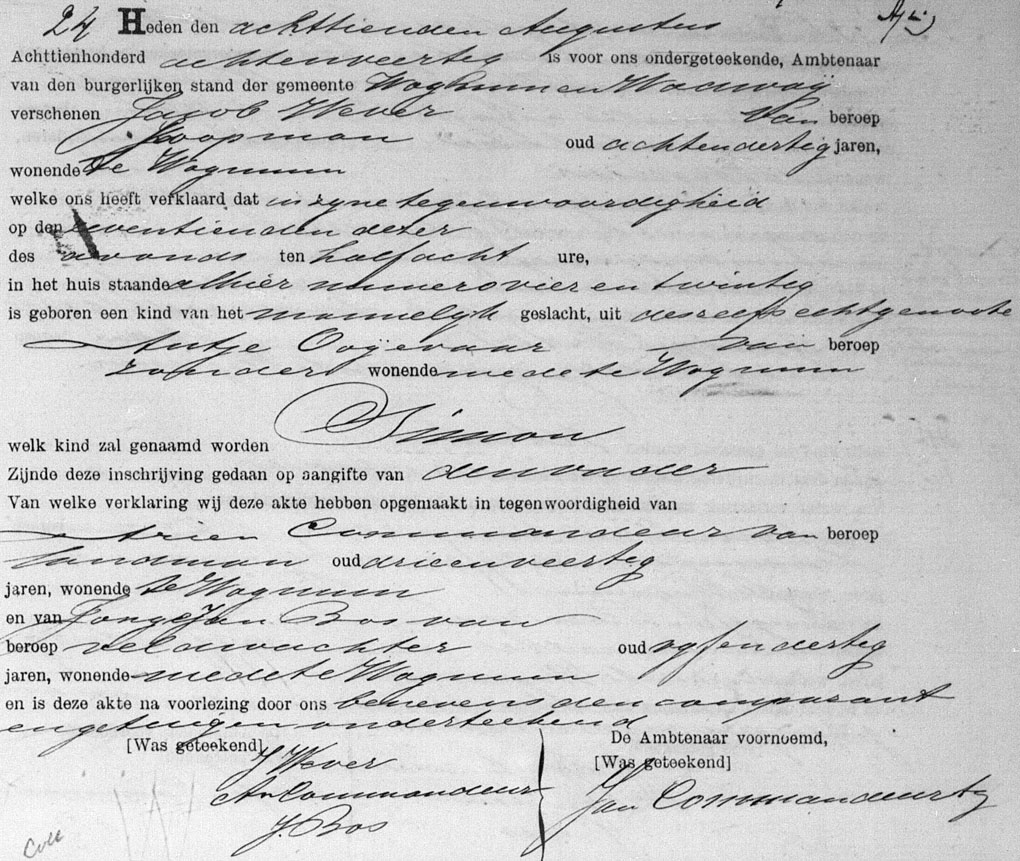 24 Heden den achttienden Augustus
Achttienhonderd achtenveertig is voor ons ondergeteekende, Ambtenaar
van den burgerlijken stand der gemeente Wognum en Wadway
verschenen Jacob Wever van beroep
Koopman oud achtendertig jaren,
wonende te Wognum
welke ons heeft verklaard dat in zyne tegenwoordigheid
op den zeventienden dezer
des avonds ten half acht ure,
in het huis staande alhier numero vier en twintig
is geboren een kind van het mannelyk geslacht, uit deszelfs echtgenoote
Antje Oogevaar van beroep
zonder wonende mede te Wognum
welk kind zal genaamd worden Simon
Zijnde deze inschrijving gedaan op aangifte van den vader
Van welke verklaring wij deze akte hebben opgemaakt in tegenwoordigheid van
Arien Commandeur van beroep
landman oud drieenveertig
jaren, wonende te Wognum
en van Jonge Jan Bos van
beroep veldwachter oud vyfendertig
jaren, wonende mede te Wognum
en is deze akte na voorlezing door ons benevens den comparant
en getuigen onderteekend
[Was geteekend] De Ambtenaar voornoemd,
J Wever [Was geteekend]
An Commandeur Jan Commandeur
J. Bos
Coll